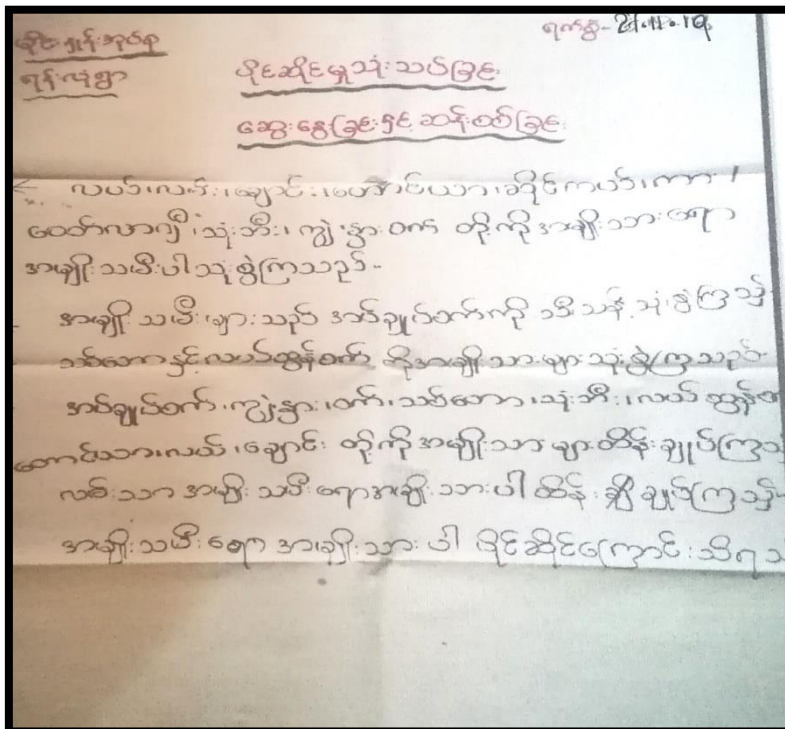 ရက်စွဲ- 21.11.19
မိုင်းရှုးအုပ်စု
ရန်လုံရွာ
ပိုင်ဆိုင်မှုသုံးသပ်ခြင်း
ဆွေးနွေးခြင်းနှင့် ဆန်းစစ်ခြင်း
လယ်၊လမ်း၊ချောင်း၊တောင်ယာ၊ဆိုင်ကယ်၊ကား၊
ထော်လာဂျီ၊သုံးဘီး၊ကျွဲ၊နွား၊ဝက် တို့ကိုအမျိုးသားရော
အမျိုးသမီးပါသုံးစွဲကြသည်-
အမျိုးသမီးများသည် အပ်ချုပ်စက်ကို သီးသန့်သုံးစွဲကြသည်
သစ်တောနှင့်လယ်ထွန်စက် ကိုအမျိုးသားများသုံးစွဲကြသည်-
အပ်ချုပ်စက်၊ကျွဲ၊နွား၊ဝက်၊သစ်တော၊သုံးဘီး၊လယ်ထွန်စ
တောင်ယာ၊လယ်၊ချောင်း တို့ကိုအမျိုးသားများထိန်းချုပ်ကြသ
လမ်းသာ အမျိုးသမီးရောအမျိုးသားပါထိန်းချုပ်ကြသည်-
အမျိုးသမီးရော အမျိုးသားပါ ပိုင်ဆိုင်ကြောင်းသိရသ